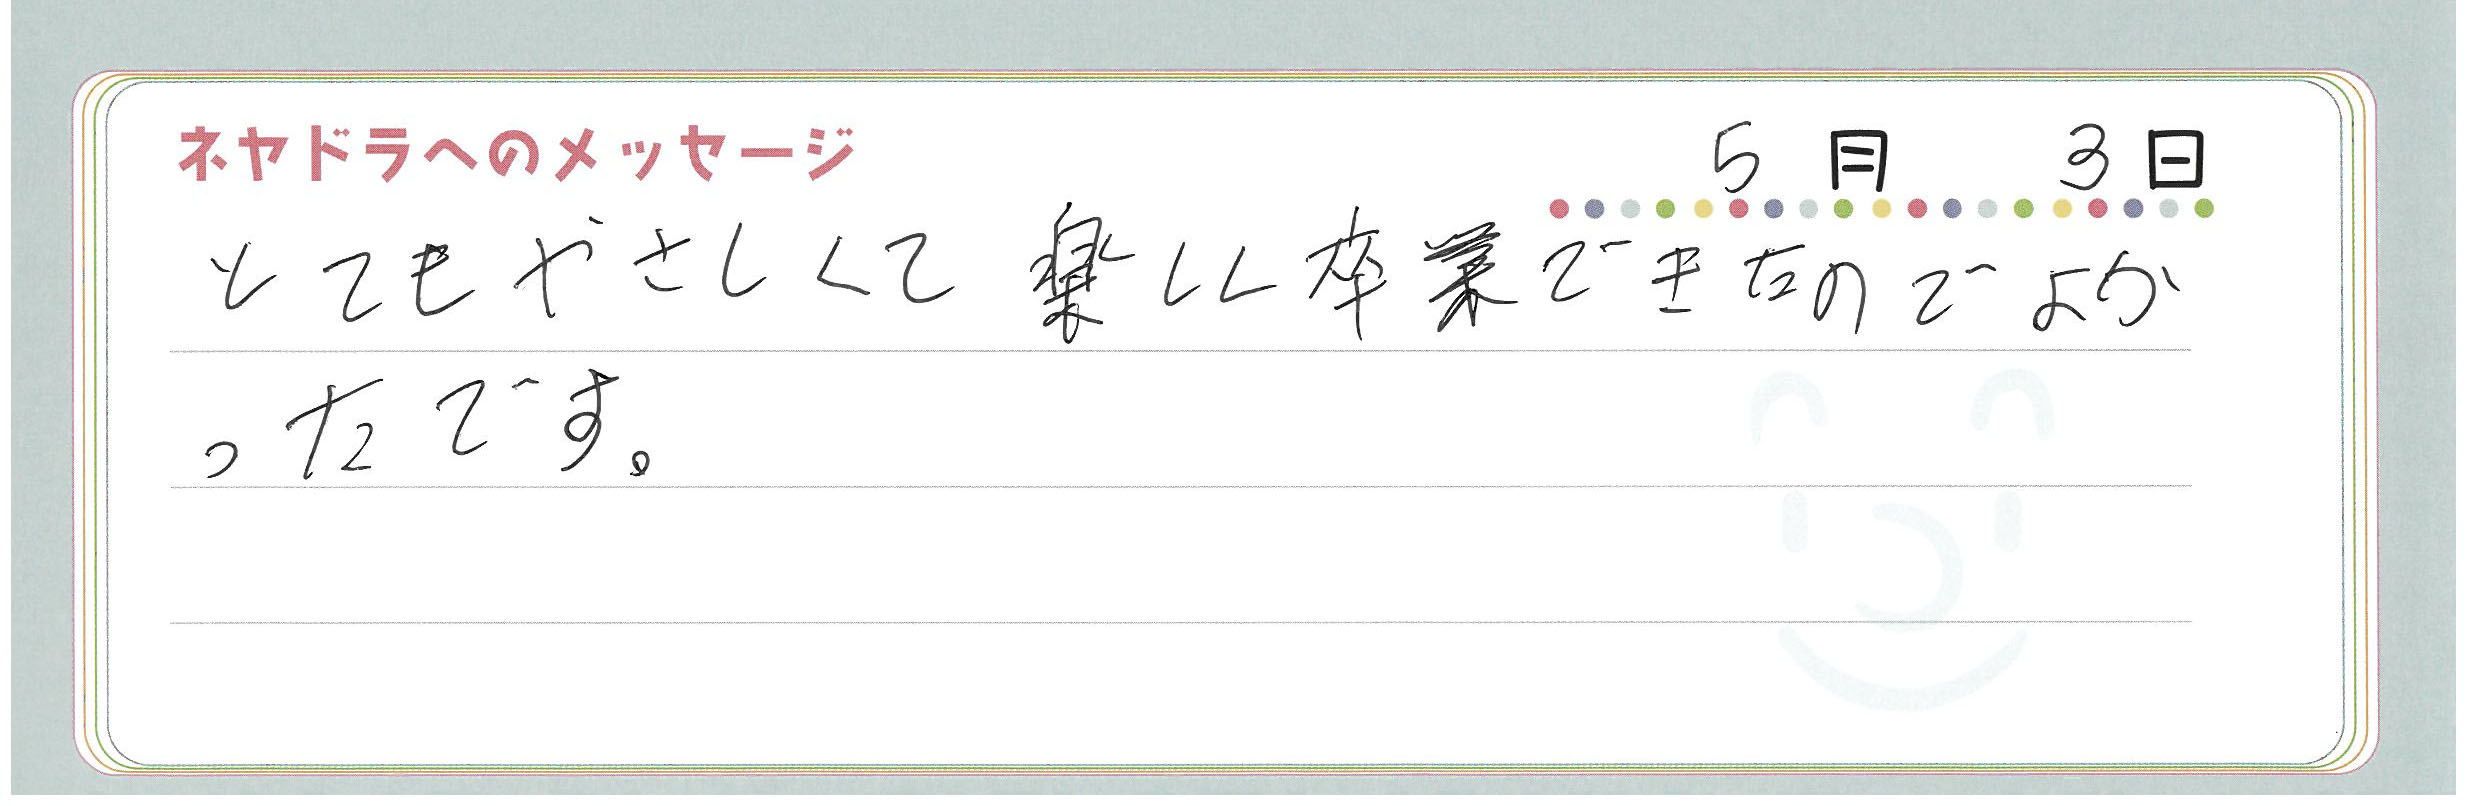 ネヤドラへのメッセージ 5月 3日
とてもやさしくて 楽しく卒業できたのでよか
ったです。